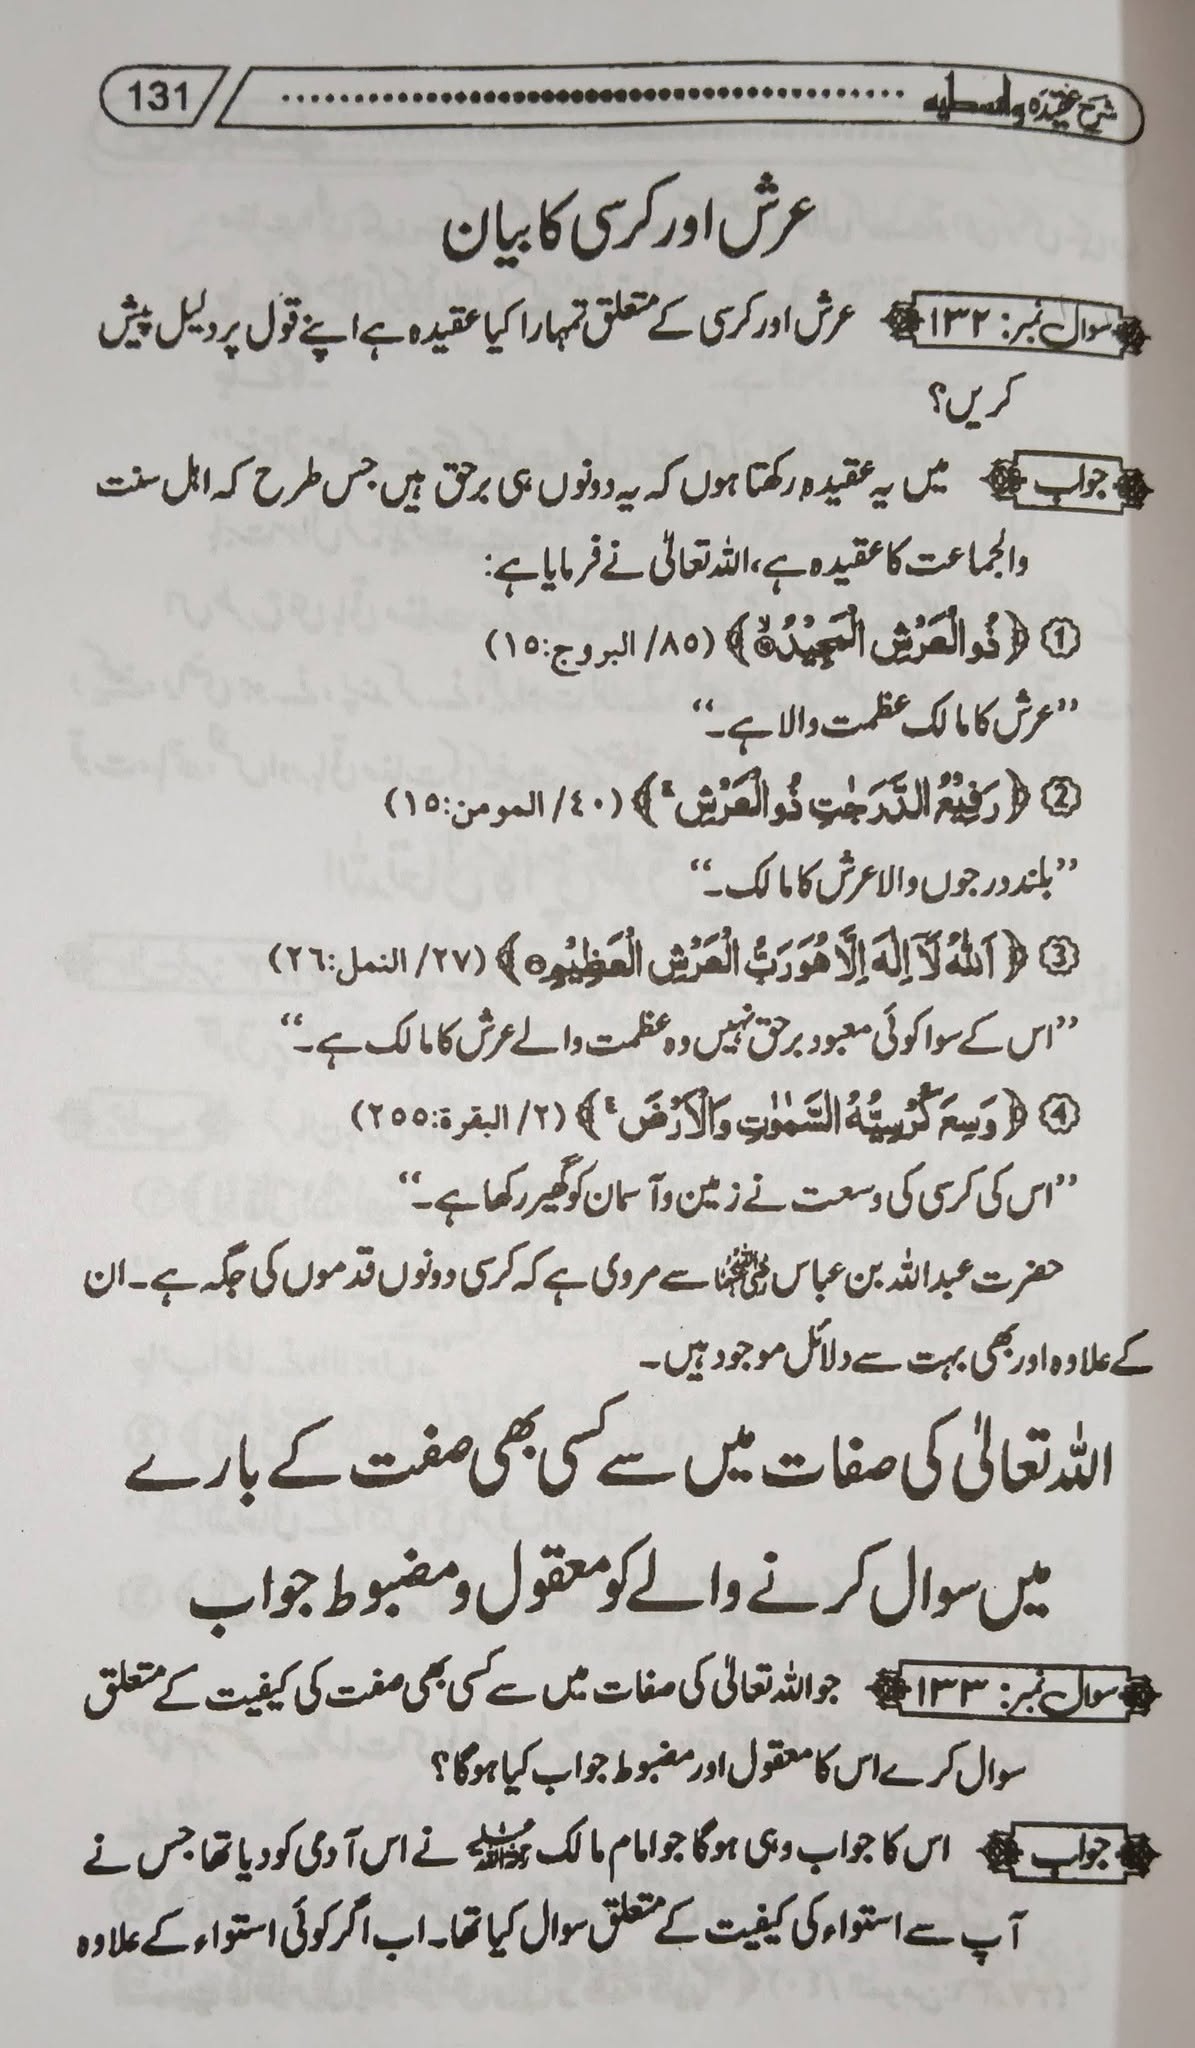 شرح عقیدہ واسطیہ 131
عرش اور کرسی کا بیان
سوال نمبر: ۱۳۲ عرش اور کرسی کے متعلق تمہارا کیا عقیدہ ہے اپنے قول پر دلیل پیش
کریں؟
جواب میں یہ عقیدہ رکھتا ہوں کہ یہ دونوں ہی برحق ہیں جس طرح کہ اہل سنت
والجماعت کا عقیدہ ہے، اللہ تعالیٰ نے فرمایا ہے:
1 ﴿ذُو الْعَرْشِ الْمَجِیْدُۙ﴾ (۸۵/ البروج:۱۵)
”عرش کا مالک عظمت والا ہے۔“
2 ﴿رَفِیْعُ الدَّرَجٰتِ ذُو الْعَرْشِ ۚ﴾ (۴۰/ المومن:۱۵)
”بلند درجوں والا عرش کا مالک۔“
3 ﴿اَللّٰهُ لَاۤ اِلٰهَ اِلَّا هُوَ رَبُّ الْعَرْشِ الْعَظِیْمِ﴾ (۲۷/ النمل:۲۶)
”اس کے سوا کوئی معبود برحق نہیں وہ عظمت والے عرش کا مالک ہے۔“
4 ﴿وَسِعَ كُرْسِیُّهُ السَّمٰوٰتِ وَالْاَرْضَ ۚ﴾ (۲/ البقرة:۲۵۵)
”اس کی کرسی کی وسعت نے زمین و آسمان کو گھیر رکھا ہے۔“
حضرت عبداللہ بن عباس رضی اللہ عنہما سے مروی ہے کہ کرسی دونوں قدموں کی جگہ ہے۔ ان
کے علاوہ اور بھی بہت سے دلائل موجود ہیں۔
اللہ تعالیٰ کی صفات میں سے کسی بھی صفت کے بارے
میں سوال کرنے والے کو معقول و مضبوط جواب
سوال نمبر: ۱۳۳ جو اللہ تعالیٰ کی صفات میں سے کسی بھی صفت کی کیفیت کے متعلق
سوال کرے اس کا معقول اور مضبوط جواب کیا ہوگا؟
جواب اس کا جواب وہی ہوگا جو امام مالک رحمہ اللہ نے اس آدمی کو دیا تھا جس نے
آپ سے استواء کی کیفیت کے متعلق سوال کیا تھا۔ اب اگر کوئی استواء کے علاوہ